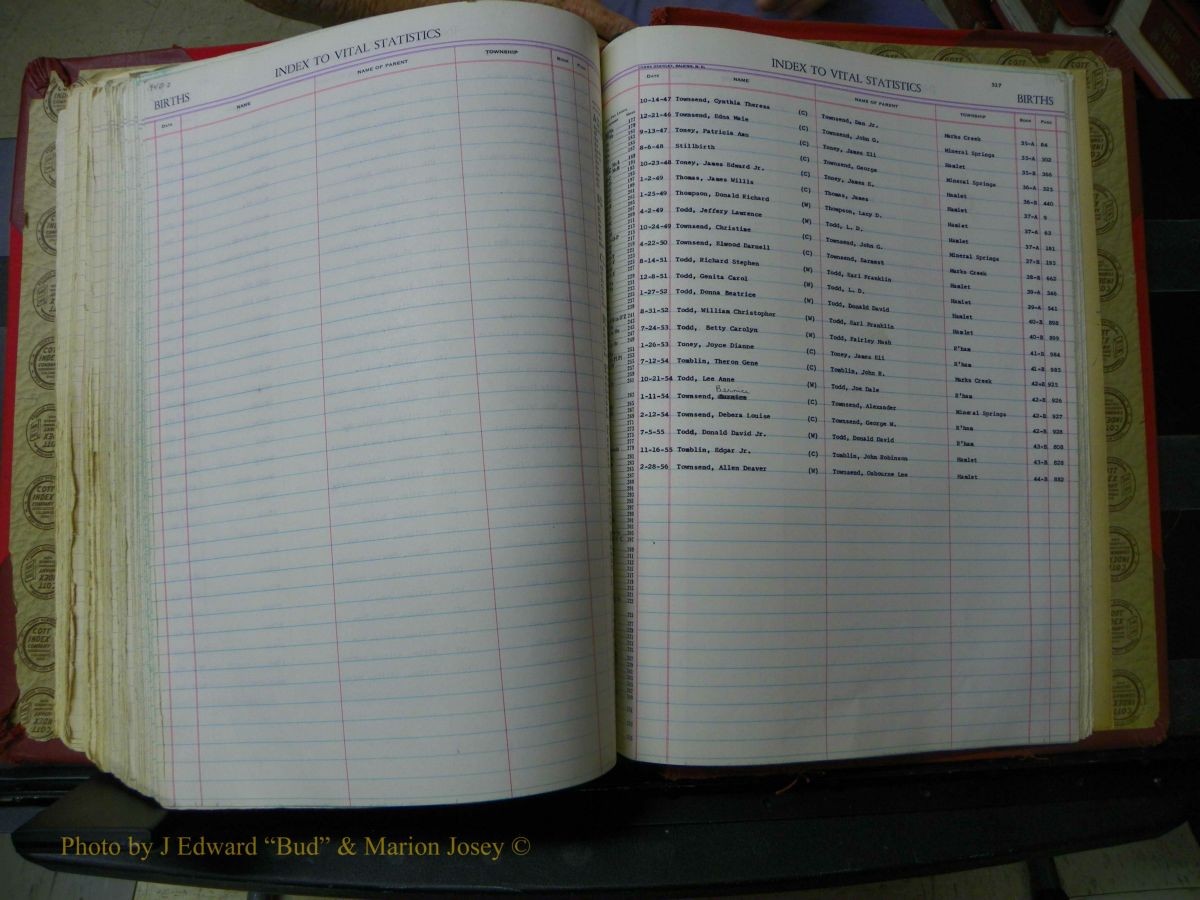 INDEX TO VITAL STATISTICS
BIRTHS
DATE NAME NAME OF PARENT TOWNSHIP BOOK PAGE
INDEX TO VITAL STATISTICS 317
BIRTHS
DATE NAME NAME OF PARENT TOWNSHIP BOOK PAGE
10-14-47 Townsend, Cynthia Theresa (C) Townsend, Dan Jr. Marks Creek 35-A 84
12-21-46 Townsend, Edna Maie (C) Townsend, John G. Mineral Springs 35-A 302
9-13-47 Toney, Patricia Ann (C) Toney, James Eli Hamlet 35-B 366
8-6-48 Stillbirth (C) Townsend, George Mineral Springs 36-A 323
10-23-48 Toney, James Edward Jr. (C) Toney, James E. Hamlet 36-B 440
1-2-49 Thomas, James Willis (C) Thomas, James Hamlet 37-A 9
1-25-49 Thompson, Donald Richard (W) Thompson, Lacy D. Hamlet 37-A 63
4-2-49 Todd, Jeffery Lawrence (W) Todd, L. D. Hamlet 37-A 181
10-24-49 Townsend, Christine (C) Townsend, John G. Mineral Springs 37-B 193
4-22-50 Townsend, Elwood Darnell (C) Townsend, Earnest Marks Creek 38-B 662
8-14-51 Todd, Richard Stephen (W) Todd, Earl Franklin Hamlet 39-A 346
12-8-51 Todd, Genita Carol (W) Todd, L. D. Hamlet 39-A 541
1-27-52 Todd, Donna Beatrice (W) Todd, Donald David Hamlet 40-B 898
8-31-52 Todd, William Christopher (W) Todd, Earl Franklin Hamlet 40-B 899
7-24-53 Todd, Betty Carolyn (W) Todd, Fairley Nash R'ham 41-B 984
1-26-53 Toney, Joyce Dianne (C) Toney, James Eli R'ham 41-B 985
7-12-54 Tomblin, Theron Gene (C) Tomblin, John R. Marks Creek 42-B 925
10-21-54 Todd, Lee Anne (W) Todd, Joe Dale R'ham 42-B 926
Bernice
1-11-54 Townsend, (C) Townsend, Alexander Mineral Springs 42-B 927
2-12-54 Townsend, Debera Louise (C) Townsend, George W. R'ham 42-B 928
7-5-55 Todd, Donald David Jr. (W) Todd, Donald David R'ham 43-B 808
11-16-55 Tomblin, Edgar Jr. (C) Tomblin, John Robinson Hamlet 43-B 828
2-28-56 Townsend, Allen Deaver (W) Townsend, Osbourne Lee Hamlet 44-B 882
COTT INDEX COMPANY
Photo by J Edward “Bud” & Marion Josey ©